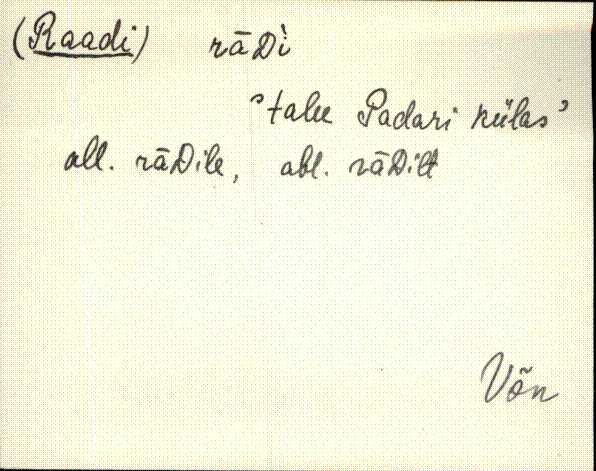 (Raadi) rāDì
'talu Padari külas'
all. rāDile, abl. rāDilt
Võn